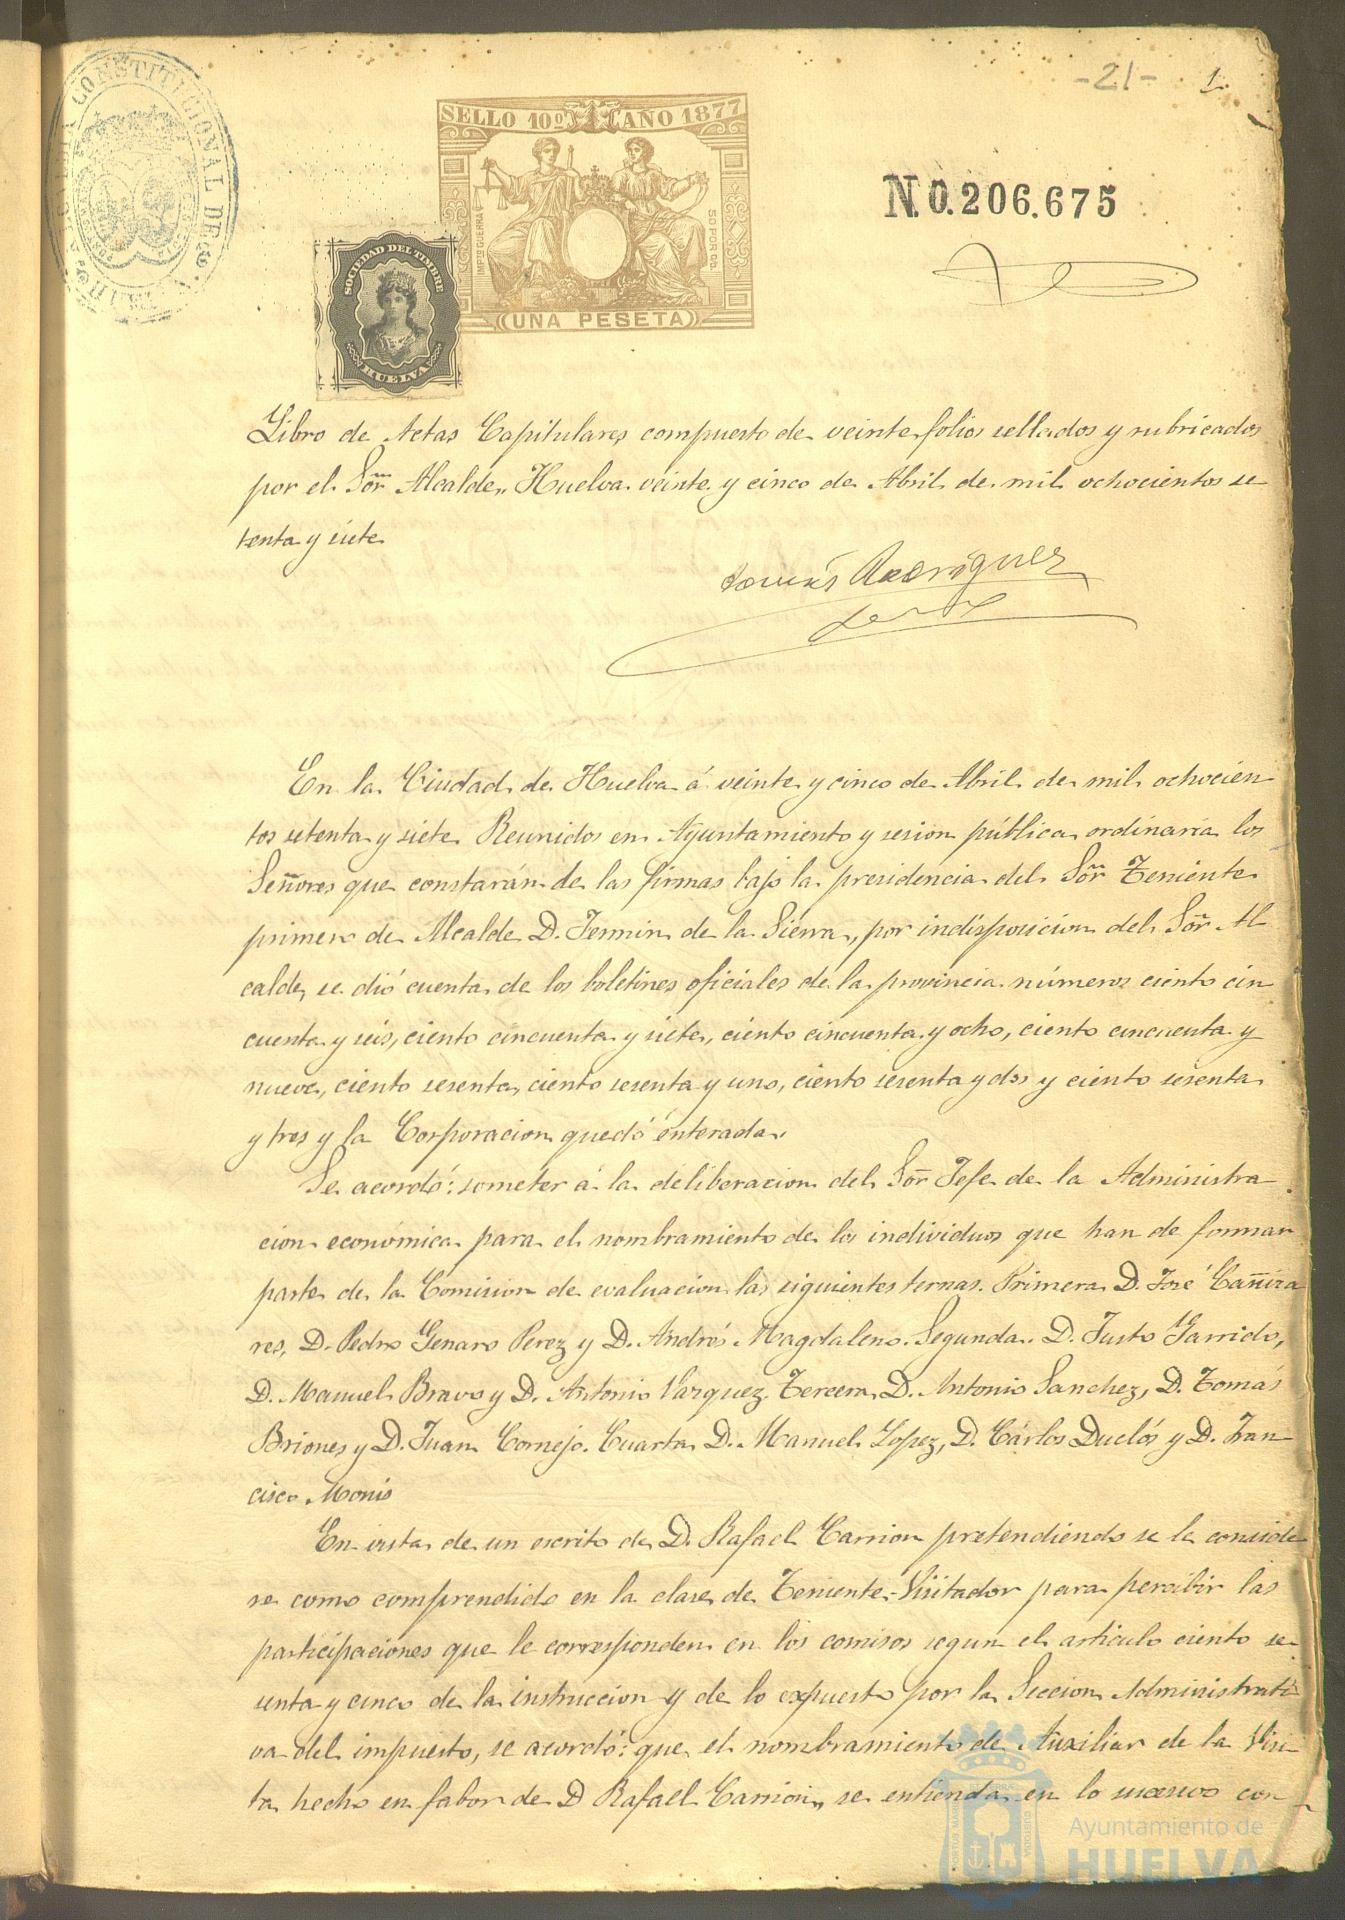 -21- 1.
ALCALDIA CONSTITUCIONAL DE
SELLO 10º AÑO 1877
IMPTO GUERRA
50 POR 00.
UNA PESETA
SOCIEDAD DEL TIMBRE
HUELVA
N.0.206.675
Libro de Actas Capitulares compuesto de veinte folios sellados y rubricados
por el Sor. Alcalde,, Huelva veinte y cinco de Abril de mil ochocientos se
tenta y siete
Tomás Rodriguez
En la Ciudad de Huelva á veinte y cinco de Abril de mil ochocien
tos setenta y siete Reunidos en Ayuntamiento y sesion pública ordinaria los
Señores que constarán de las firmas bajo la presidencia del Sor. Teniente
primero de Alcalde D. Fermin de la Sierra, por indisposicion del Sor. Al
calde, se dió cuenta de los boletines oficiales de la provincia números ciento cin
cuenta y seis, ciento cincuenta y siete, ciento cincuenta y ocho, ciento cincuenta y
nueve, ciento sesenta, ciento sesenta y uno, ciento sesenta y dos y ciento sesenta
y tres y la Corporacion quedó enterada.
Se acordó: someter á la deliberacion del Sor. Jefe de la Administra
cion económica para el nombramiento de los individuos que han de formar
parte de la Comision de evaluacion las siguientes ternas. Primera D. José Cañiza
res, D. Pedro Genaro Perez y D. Andrés Magdaleno. Segunda. D. Justo Garrido,
D. Manuel Bravo y D. Antonio Vazquez. Tercera D. Antonio Sanchez, D. Tomás
Briones y D. Juan Cornejo. Cuarta D. Manuel Lopez, D. Cárlos Duclós y D. Fran
cisco Monis
En vista de un escrito de D. Rafael Carrion pretendiendo se le conside
re como comprendido en la clase de Teniente-Visitador para percibir las
participaciones que le corresponden en los comisos segun el articulo ciento se
senta y cinco de la instruccion y de lo expuesto por la Seccion Administrati
va del impuesto, se acordó: que el nombramiento de Auxiliar de la Visi
ta hecho en fabor de D Rafael Carrion, se entienda en lo sucesivo con
Ayuntamiento de
HUELVA